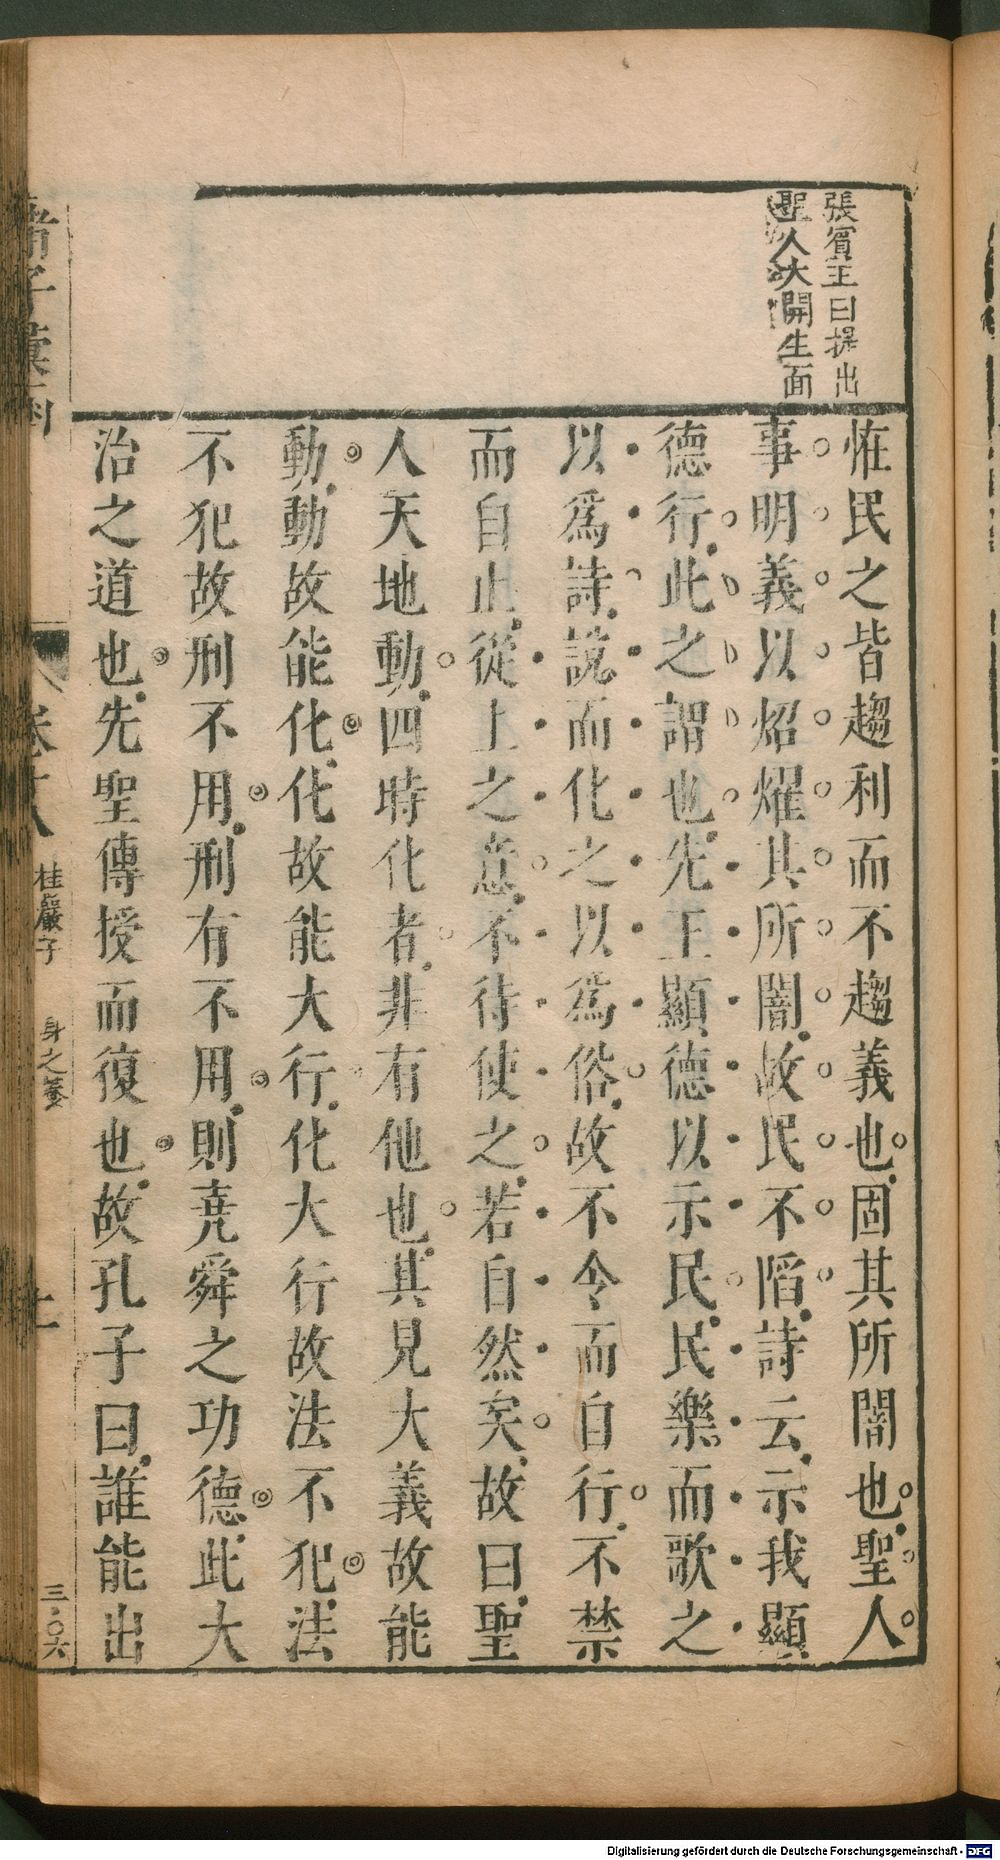 張賓王曰提出
聖人大開生面
恠民之皆趨利而不趨義也固其所闇也聖人
事明義以炤燿其所闇故民不陷詩云示我顯
德行此之謂也先王顯德以示民民樂而歌之
以爲詩說而化之以爲俗故不令而自行不禁
而自止從上之意不待使之若自然矣故曰聖
人天地動四時化者非有他也其見大義故能
動動故能化化故能大行化大行故法不犯法
不犯故刑不用刑有不用則堯舜之功德此大
治之道也先聖傳授而復也故孔子曰誰能出
諸子彙函
卷十八
桂巖子
身之養
三〇六
Digitalisierung gefördert durch die Deutsche Forschungsgemeinschaft - DFG